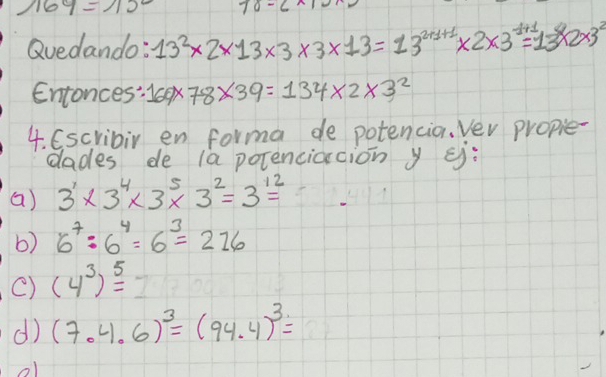 169=13²
78=2×13×3
Quedando: 13²×2×13×3×3×13=13²⁺¹⁺¹×2×3¹⁺¹=13⁴×2×3²
Entonces: 169×78×39=134×2×3²
4. Escribir en forma de potencia. Ver propie-
dades de la potenciacción y ej:
a) 3¹×3⁴×3⁵×3²=3¹²= .
b) 6⁷:6⁴=6³=216
c) (4³)⁵=
d) (7.4.6)³=(94.4)³=